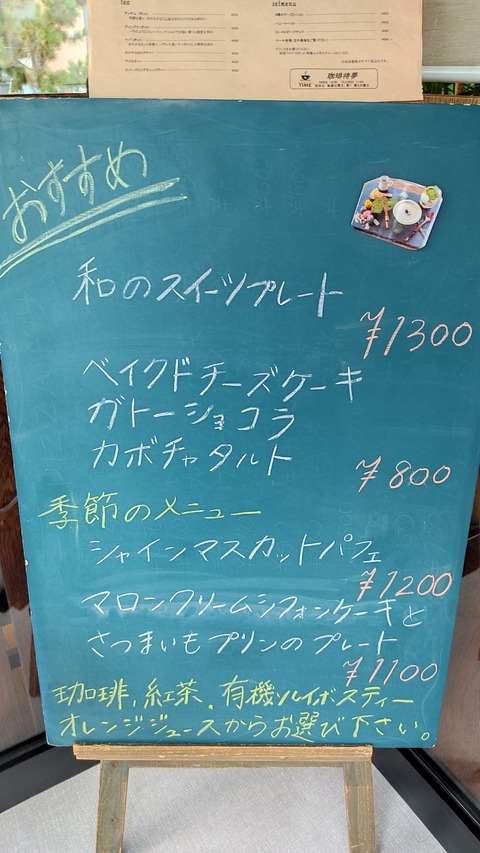 tea
setmenu
珈琲待夢
TIME
おすすめ
和のスイーツプレート
¥1300
ベイクドチーズケーキ
ガトーショコラ
カボチャタルト
¥800
季節のメニュー
シャインマスカットパフェ
¥1200
マロンクリームシフォンケーキと
さつまいもプリンのプレート
¥1100
珈琲、紅茶、有機ルイボスティー
オレンジジュースからお選び下さい。